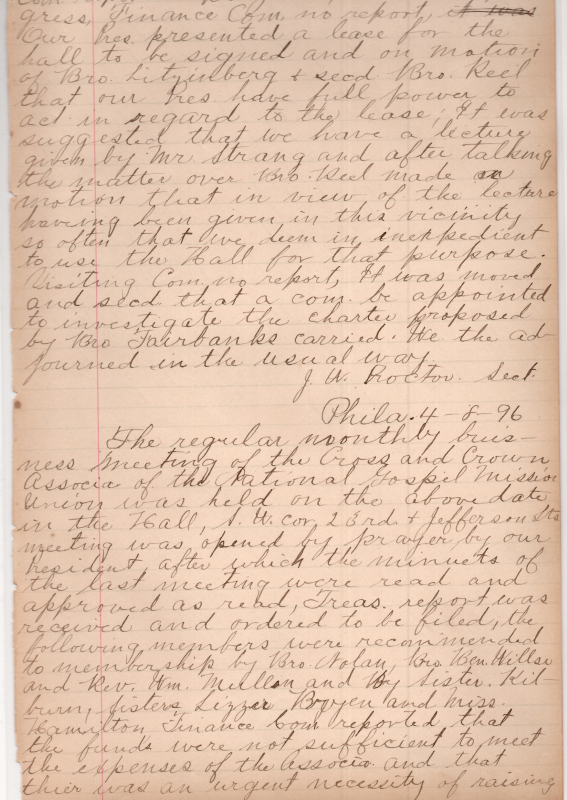 gress, Finance Com. no report, it was
Our Pres. presented a lease for the
hall to be signed and on motion
of Bro. Litzinberg & secd Bro. Keel
that our Pres have full power to
act in regard to the lease, It was
suggested that we have a lecture
given by Mr Strang and after talking
the matter over Bro. Keel made a
motion that in view of the lecture
having been given in this vicinity
so often that we deem in inexpedient
to use the Hall for that purpose.
Visiting Com. no report, It was moved
and secd that a com. be appointed
to investigate the charter proposed
by Bro Fairbanks carried. We the ad-
journed in the usual way
J. W. Proctor. Sect.
Phila. 4-8-96
The regular monthly buis-
ness meeting of the Cross and Crown
Associa of the National Gospil Mission
Union was held on the above date
in the Hall, S. W. cor, 23rd & Jefferson Sts
meeting was opened by prayer by our
President, after which the minuets of
the last meeting were read and
approved as read, Treas. report was
received and ordered to be filed, the
following members were recommended
to membership by Bro. Nolan, Bro. Ben. Willse
and Rev. Wm. Mullen and By Sister. Kil-
burn, Sisters and Miss.
Hamilton, Finance Com reported that
the funds were not sufficient to meet
the expenses of the Associa and that
thier was an urgent necessity of raising